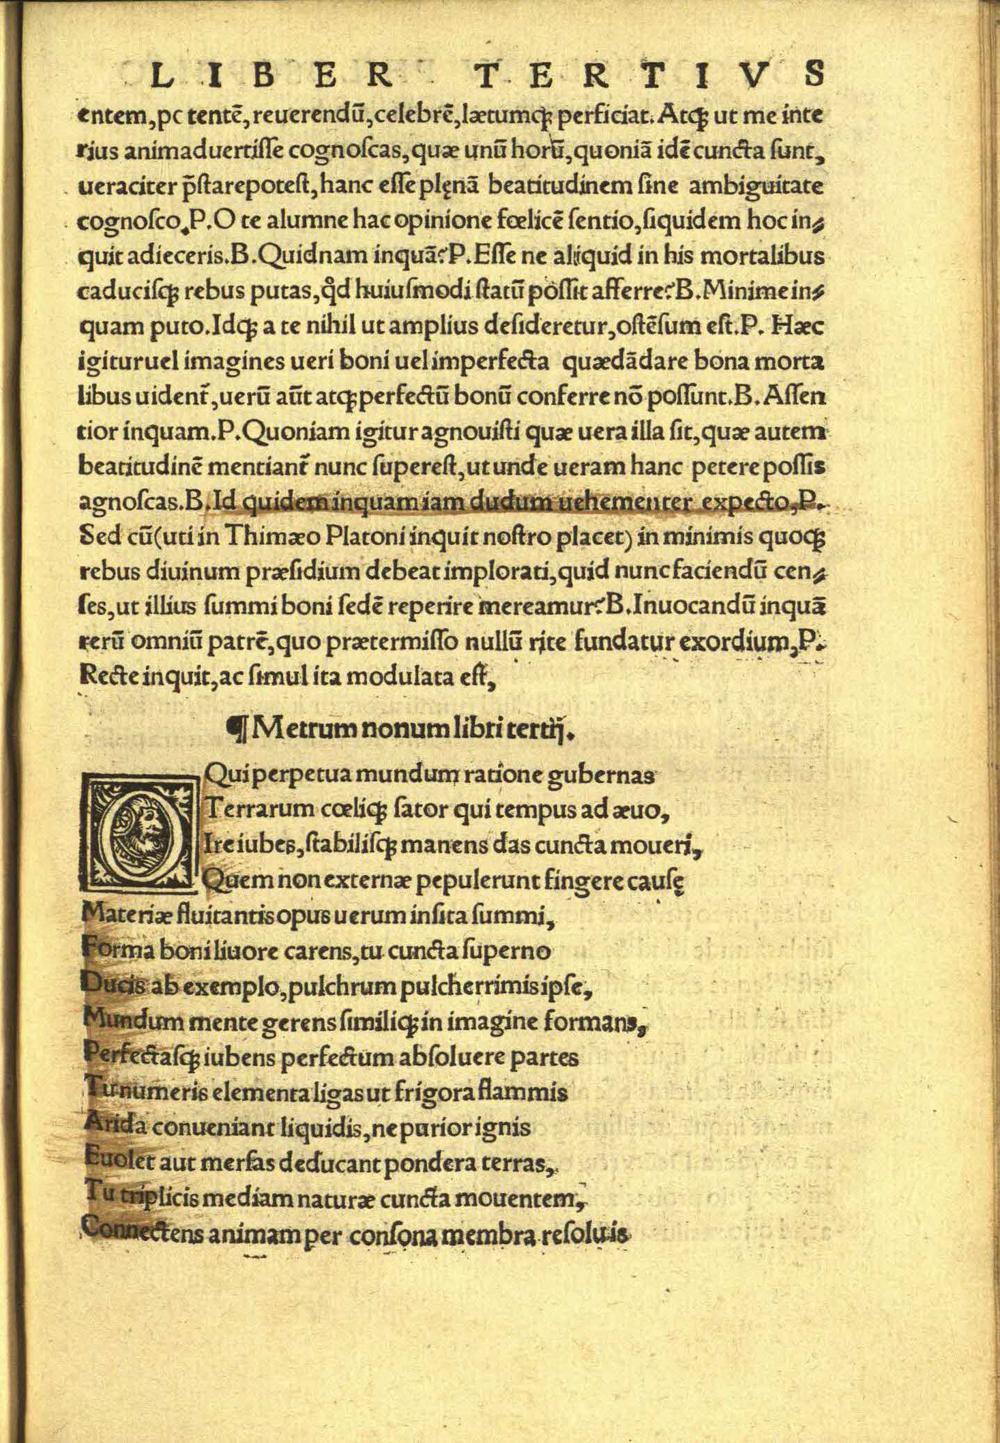 LIBER TERTIVS
entem,potentē,reuerendū,celebrē,lætumq̃ perficiat. Atq̃ ut me inte
rius animaduertisse cognoscas,quæ unū horū,quoniā idē cuncta sunt,
ueraciter p̄stare potest,hanc esse plęnā beatitudinem sine ambiguitate
cognosco.P.O te alumne hac opinione fœlicē sentio,siquidem hoc in⸗
quit adieceris.B.Quidnam inquā?P.Esse ne aliquid in his mortalibus
caducisq̃ rebus putas,q̊d huiusmodi statū possit afferre?B.Minime in⸗
quam puto.Idq̃ a te nihil ut amplius desideretur,ostēsum est.P. Hæc
igitur uel imagines ueri boni uel imperfecta quædā dare bona morta
libus uident̃,uerū aūt atq̃ perfectū bonū conferre nō possunt.B.Assen
tior inquam.P.Quoniam igitur agnouisti quæ uera illa sit,quæ autem
beatitudinē mentiant̃ nunc superest,ut unde ueram hanc petere possis
agnoscas.B.Id quidem inquam iam dudum uehementer expecto,P.
Sed cū(uti in Thimæo Platoni inquit nostro placet) in minimis quoq̃
rebus diuinum præsidium debeat implorari,quid nunc faciendū cen⸗
ses,ut illius summi boni sedē reperire mereamur?B.Inuocandū inquā
rerū omniū patrē,quo prætermisso nullū rite fundatur exordium,P.
Recte inquit,ac simul ita modulata est,
¶ Metrum nonum libri tertij.
O Qui perpetua mundum ratione gubernas
Terrarum cœliq̃ sator qui tempus ad æuo,
Ire iubes,stabilisq̃ manens das cuncta moueri,
Quem non externæ pepulerunt fingere causę
Materiæ fluitantis opus uerum insita summi,
Forma boni liuore carens,tu cuncta superno
Ducis ab exemplo,pulchrum pulcherrimis ipse,
Mundum mente gerens similiq̃ in imagine formans,
Perfectasq̃ iubens perfectum absoluere partes
Tu numeris elementa ligas ut frigora flammis
Arida conueniant liquidis,ne purior ignis
Euolet aut mersas deducant pondera terras,
Tu triplicis mediam naturæ cuncta mouentem,
Connectens animam per consona membra resoluis